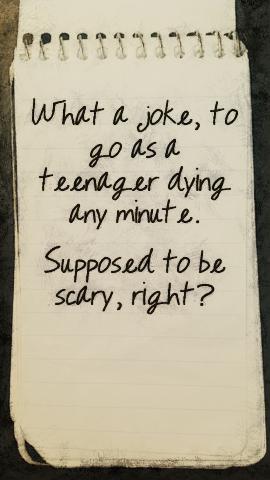 What a joke, to
go as a
teenager dying
any minute.
Supposed to be
scary, right?